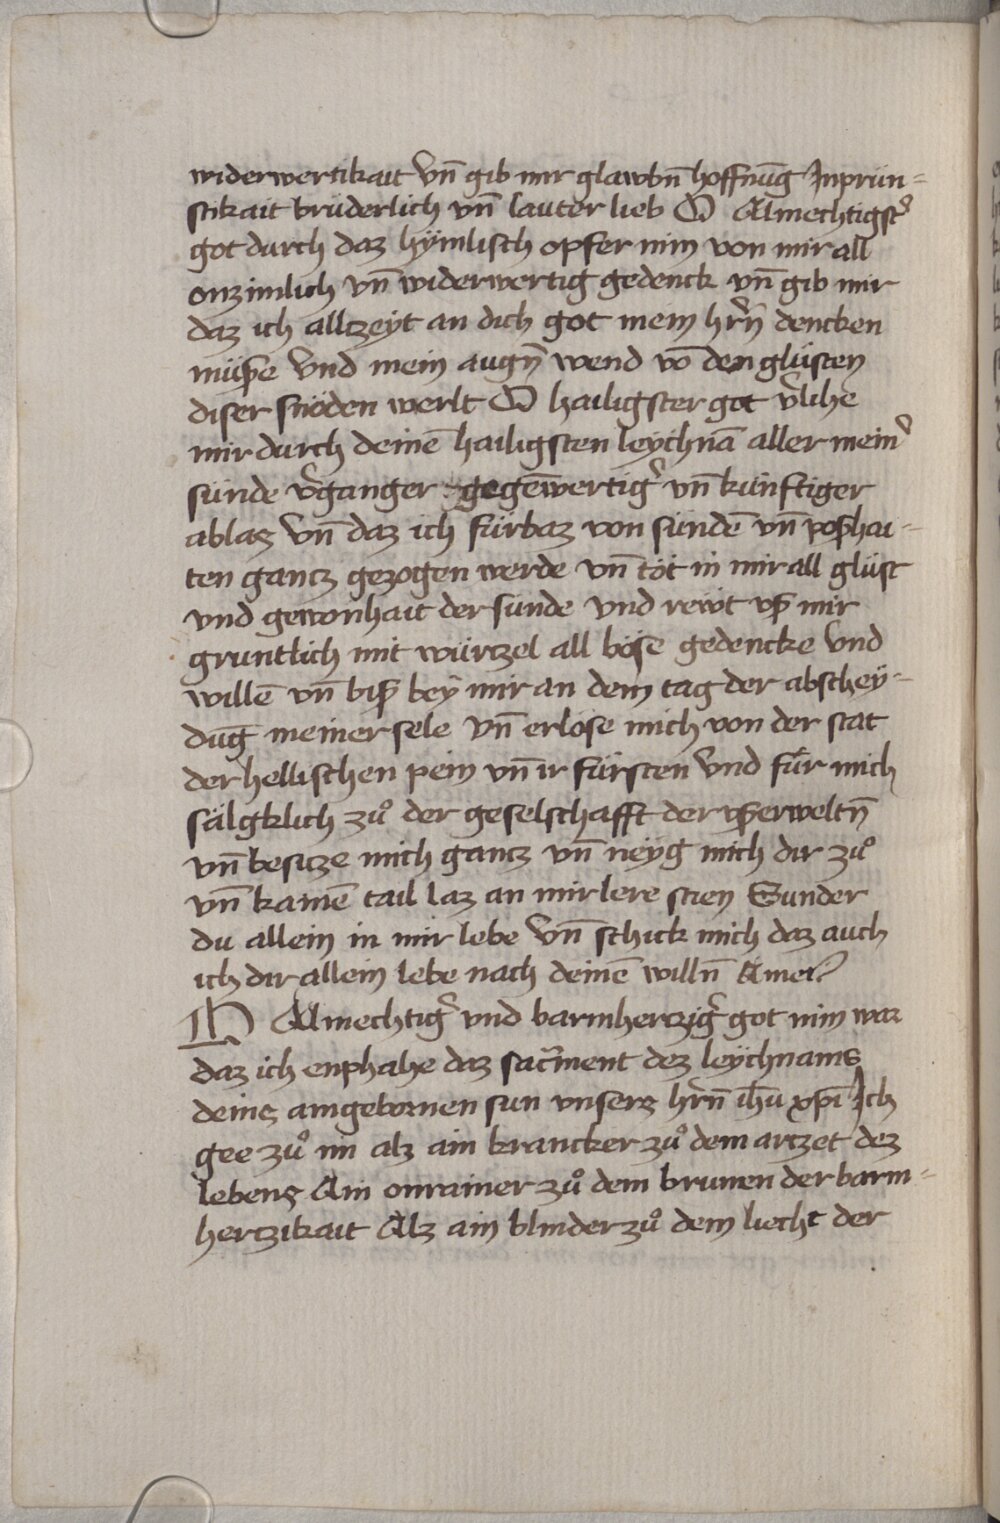 widerwertikait vn̄ gib mir glawbn̄ hoffnūg Inprün=
stikait brüderlich vn̄ lauter lieb O Almechtigst᾿
got durch daz hÿmlisch opfer nim von mir all
onzimlich vn̄ widerwertig gedenck vn̄ gib mir
daz ich alltzeyt an dich got mein hr̄n dencken
müße vnd mein augn̄ wend vō den glüsten
diser snöden werlt O hailigster got v᾿lihe
mir durch deinē hailigsten leychnā aller mein᾿
sünde v᾿ganger gegēwertig᾿ vn̄ künftiger
ablas vn̄ daz ich fürbaz von sündē vn̄ poßhai=
ten gancz gezogen werde vn̄ töt in mir all glüst
vnd gewonhait der sünde vnd rewt vß mir
gruntlich mit würtzel all böse gedencke vnd
willē vn̄ biß beÿ mir an dem tag der abschey=
dūg meiner sele vn̄ erlöse mich von der stat
der hellischen pein vn̄ ir fürsten vnd für mich
sälgklich zů der geselschafft der vßerweltn̄
vn̄ besitze mich gancz vn̄ neÿg mich dir zů
vn̄ kainē tail laz an mir lere stien Sunder
du allein in mir lebe vn̄ schick mich daz auch
ich dir allein lebe nach deinē willn̄ Amen
O Almechtig᾿ vnd barmhertzig᾿ got nim war
daz ich enphahe daz sacr̄ment dez leÿchnams
deins aingebornen sun vnsers hr̄n ih̄u xp̄i Ich
gee zů im alz ain krancker zů dem artzet dez
lebens Ain onrainer zů dem brunnen der barm=
hertzikait Alz ain blinder zů dem liecht der